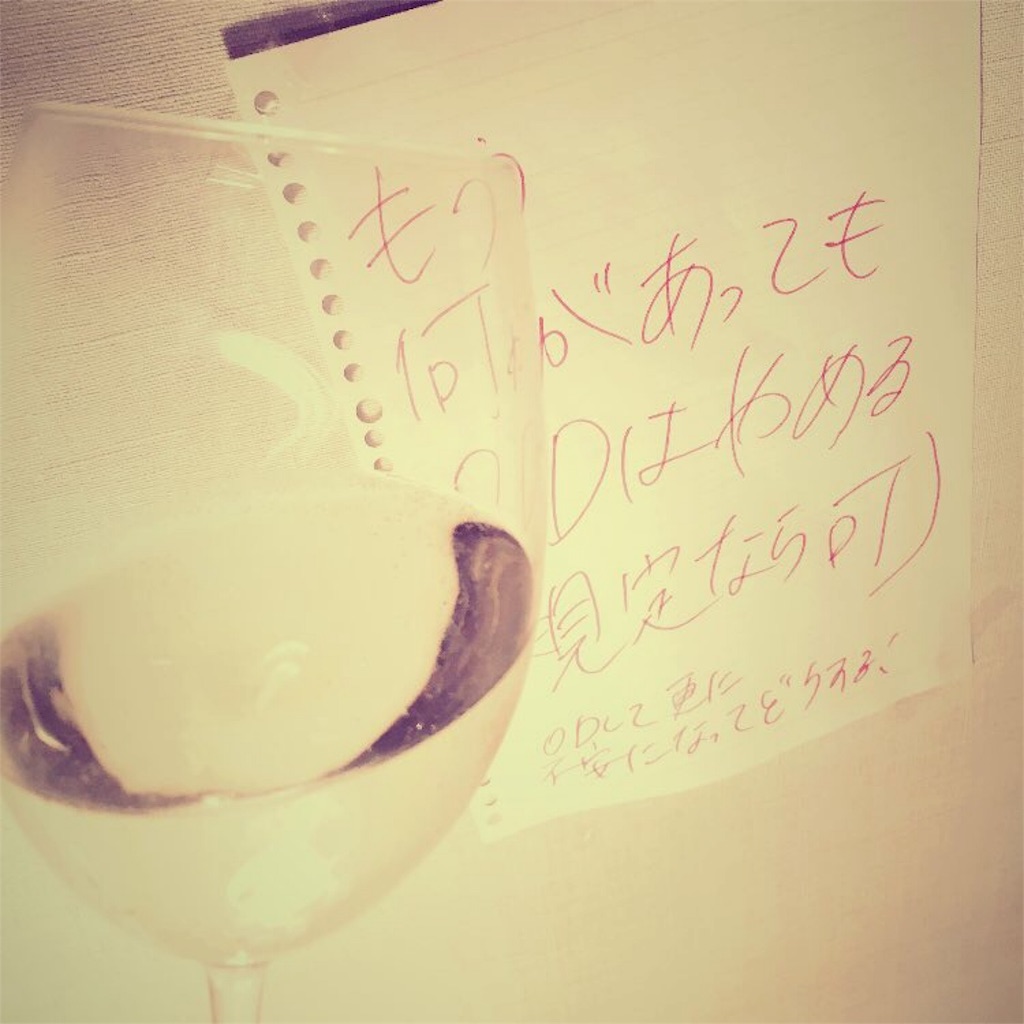 もう
何があっても
ODはやめる
見定なら可)
ODして更に
不安になってどうする!